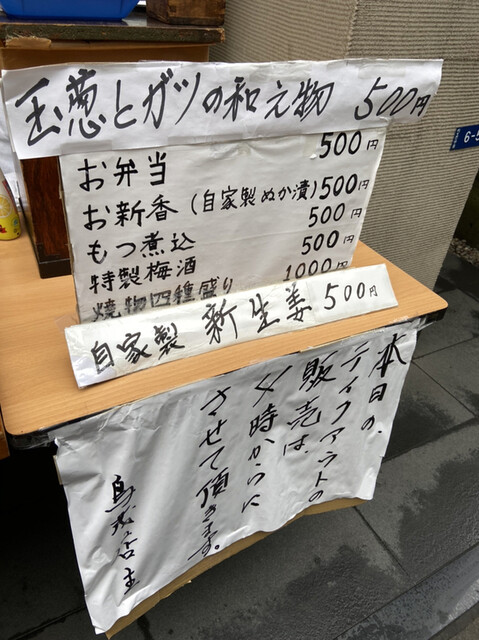 玉葱とガツの和え物 500円
お弁当 500円
お新香(自家製ぬか漬)500円
もつ煮込 500円
特製梅酒 500円
焼物四種盛り 1000円
自家製 新生姜 500円
本日の、
テイクアウトの
販売は、
4時からに
させて頂きます。
鳥茂店主
6-5